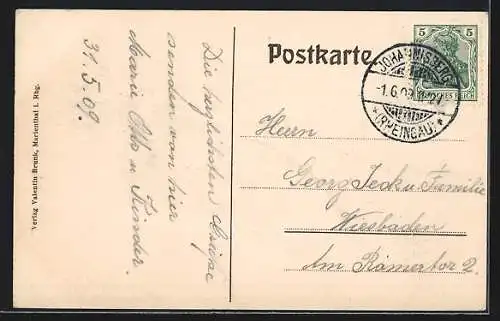 Postkarte
5 5
DEUTSCHES REICH
JOHANNISBERG
-1.6.09.
* (RHEINGAU) *
Herrn
Georg Jeck u. Familie
Wiesbaden
Am Römertor 2.
Die herzlichsten Grüße
senden von hier
Marie Otto u Kinder.
31.5.09.
Verlag Valentin Brunk, Marienthal i. Rhg.